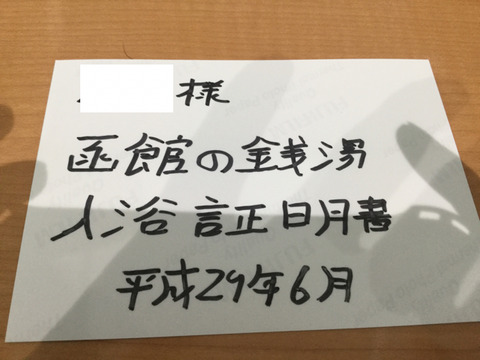 様
函館の銭湯
入浴証明書
平成29年6月